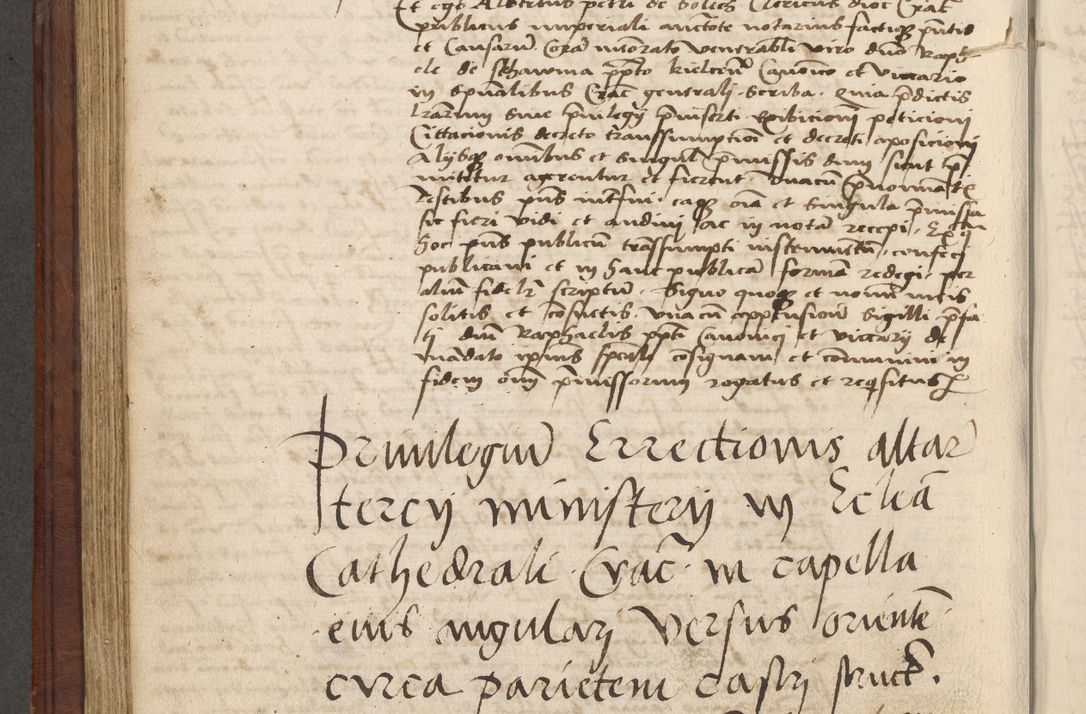 Et ego Albertus petri de boleg Clericus dioc Crac̄
publicus imperiali auctoritate notarius factiqꝫ p̄ntis
et Causarū Corā memorato venerabili viro dn̄o Raph
ele de Skhawina p̄p̄to kielceñ Canonico et vicario
in spūalibus Crac̄ generali Scriba Quia p̄dictis
lr̄arum sive p̄uilegij p̄inserti exibicioni peticioni
Cittacionis decreto transsumptioni et decreti aposicioni
Alijsqꝫ om̄ibus et singul p̄missis dum sicut p̄
mittitur agerentur et fierent vnacū p̄nominatis
Testibus p̄ns int̄fui eaqꝫ oīa et singula p̄missa
sic fieri vidi et audiui ac in notā recepi Ex qui
hoc p̄ns publicū trāssumpti instrumentū confeci
publicaui et in hanc publicā formā redegi per
aliū fidelr̄ scriptū Signo quoqꝫ et nomīe meis
solitis et cōsuetis vnacū appensione Sigilli p̄fa
ti dn̄i Raphaelis p̄p̄ti Canonici et vicarij de
mandato ip̄ius sp̄eali cosignaui et communiui in
fidem om̄ p̄missorum rogatus et reqisitus
Priuilegiū Errectionis altar̄
tercij ministerij in Ecleā
Cathedrali Crac̄ in capella
eius angulari versus orientē
circa parietem castri struct̄.